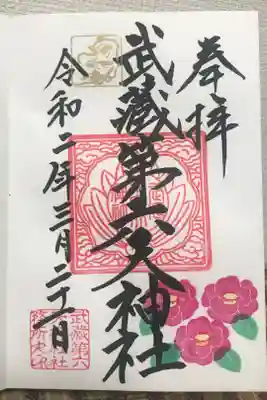 奉拝
武蔵第六天神社
令和二年三月二十一日
武蔵第六
天神社
務所之印